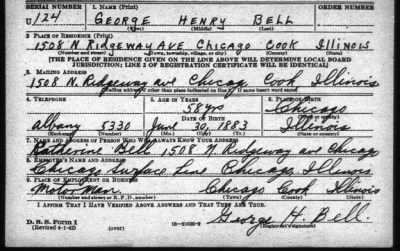 SERIAL NUMBER 1. NAME (Print) ORDER NUMBER
U 124 GEORGE HENRY BELL
(First) (Middle) (Last)
2. PLACE OF RESIDENCE (Print)
1508 N. RIDGEWAY AVE CHICAGO COOK ILLINOIS
(Number and street) (Town, township, village, or city) (County) (State)
[THE PLACE OF RESIDENCE GIVEN ON THE LINE ABOVE WILL DETERMINE LOCAL BOARD
JURISDICTION; LINE 2 OF REGISTRATION CERTIFICATE WILL BE IDENTICAL]
3. MAILING ADDRESS
1508 N. Ridgeway ave Chicag Cook Illinois
[Mailing address if other than place indicated on line 2. If same insert word same]
4. TELEPHONE 5. AGE IN YEARS 6. PLACE OF BIRTH
58 yrs Chicago
DATE OF BIRTH
Albany 5330 June 30, 1883 Illinois
7. NAME AND ADDRESS OF PERSON WHO WILL ALWAYS KNOW YOUR ADDRESS
Katherine Bell 1508 N. Ridgeway ave Chicago
8. EMPLOYER'S NAME AND ADDRESS
Chicago Surface Line Chicago, Illinois
9. PLACE OF EMPLOYMENT OR BUSINESS
Motor Man. Chicago Cook Illinois
(Number and street or R. F. D. number) (Town) (County) (State)
I AFFIRM THAT I HAVE VERIFIED ABOVE ANSWERS AND THAT THEY ARE TRUE.
George H. Bell.
D. S. S. Form 1
(Revised 4-1-42) (over) (Registrant's signature)